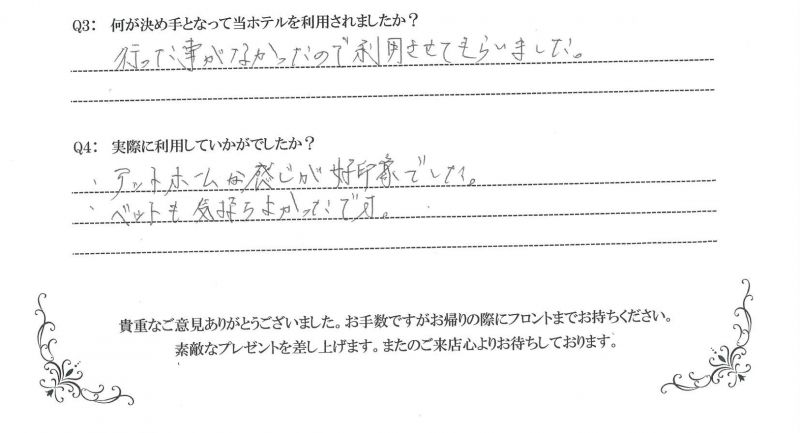 Q3： 何が決め手となって当ホテルを利用されましたか？
行った事がなかったので利用させてもらいました。
Q4： 実際に利用していかがでしたか？
・アットホームな感じが好印象でした。
・ベットも気持ちよかったです。
貴重なご意見ありがとうございました。お手数ですがお帰りの際にフロントまでお持ちください。
素敵なプレゼントを差し上げます。またのご来店心よりお待ちしております。